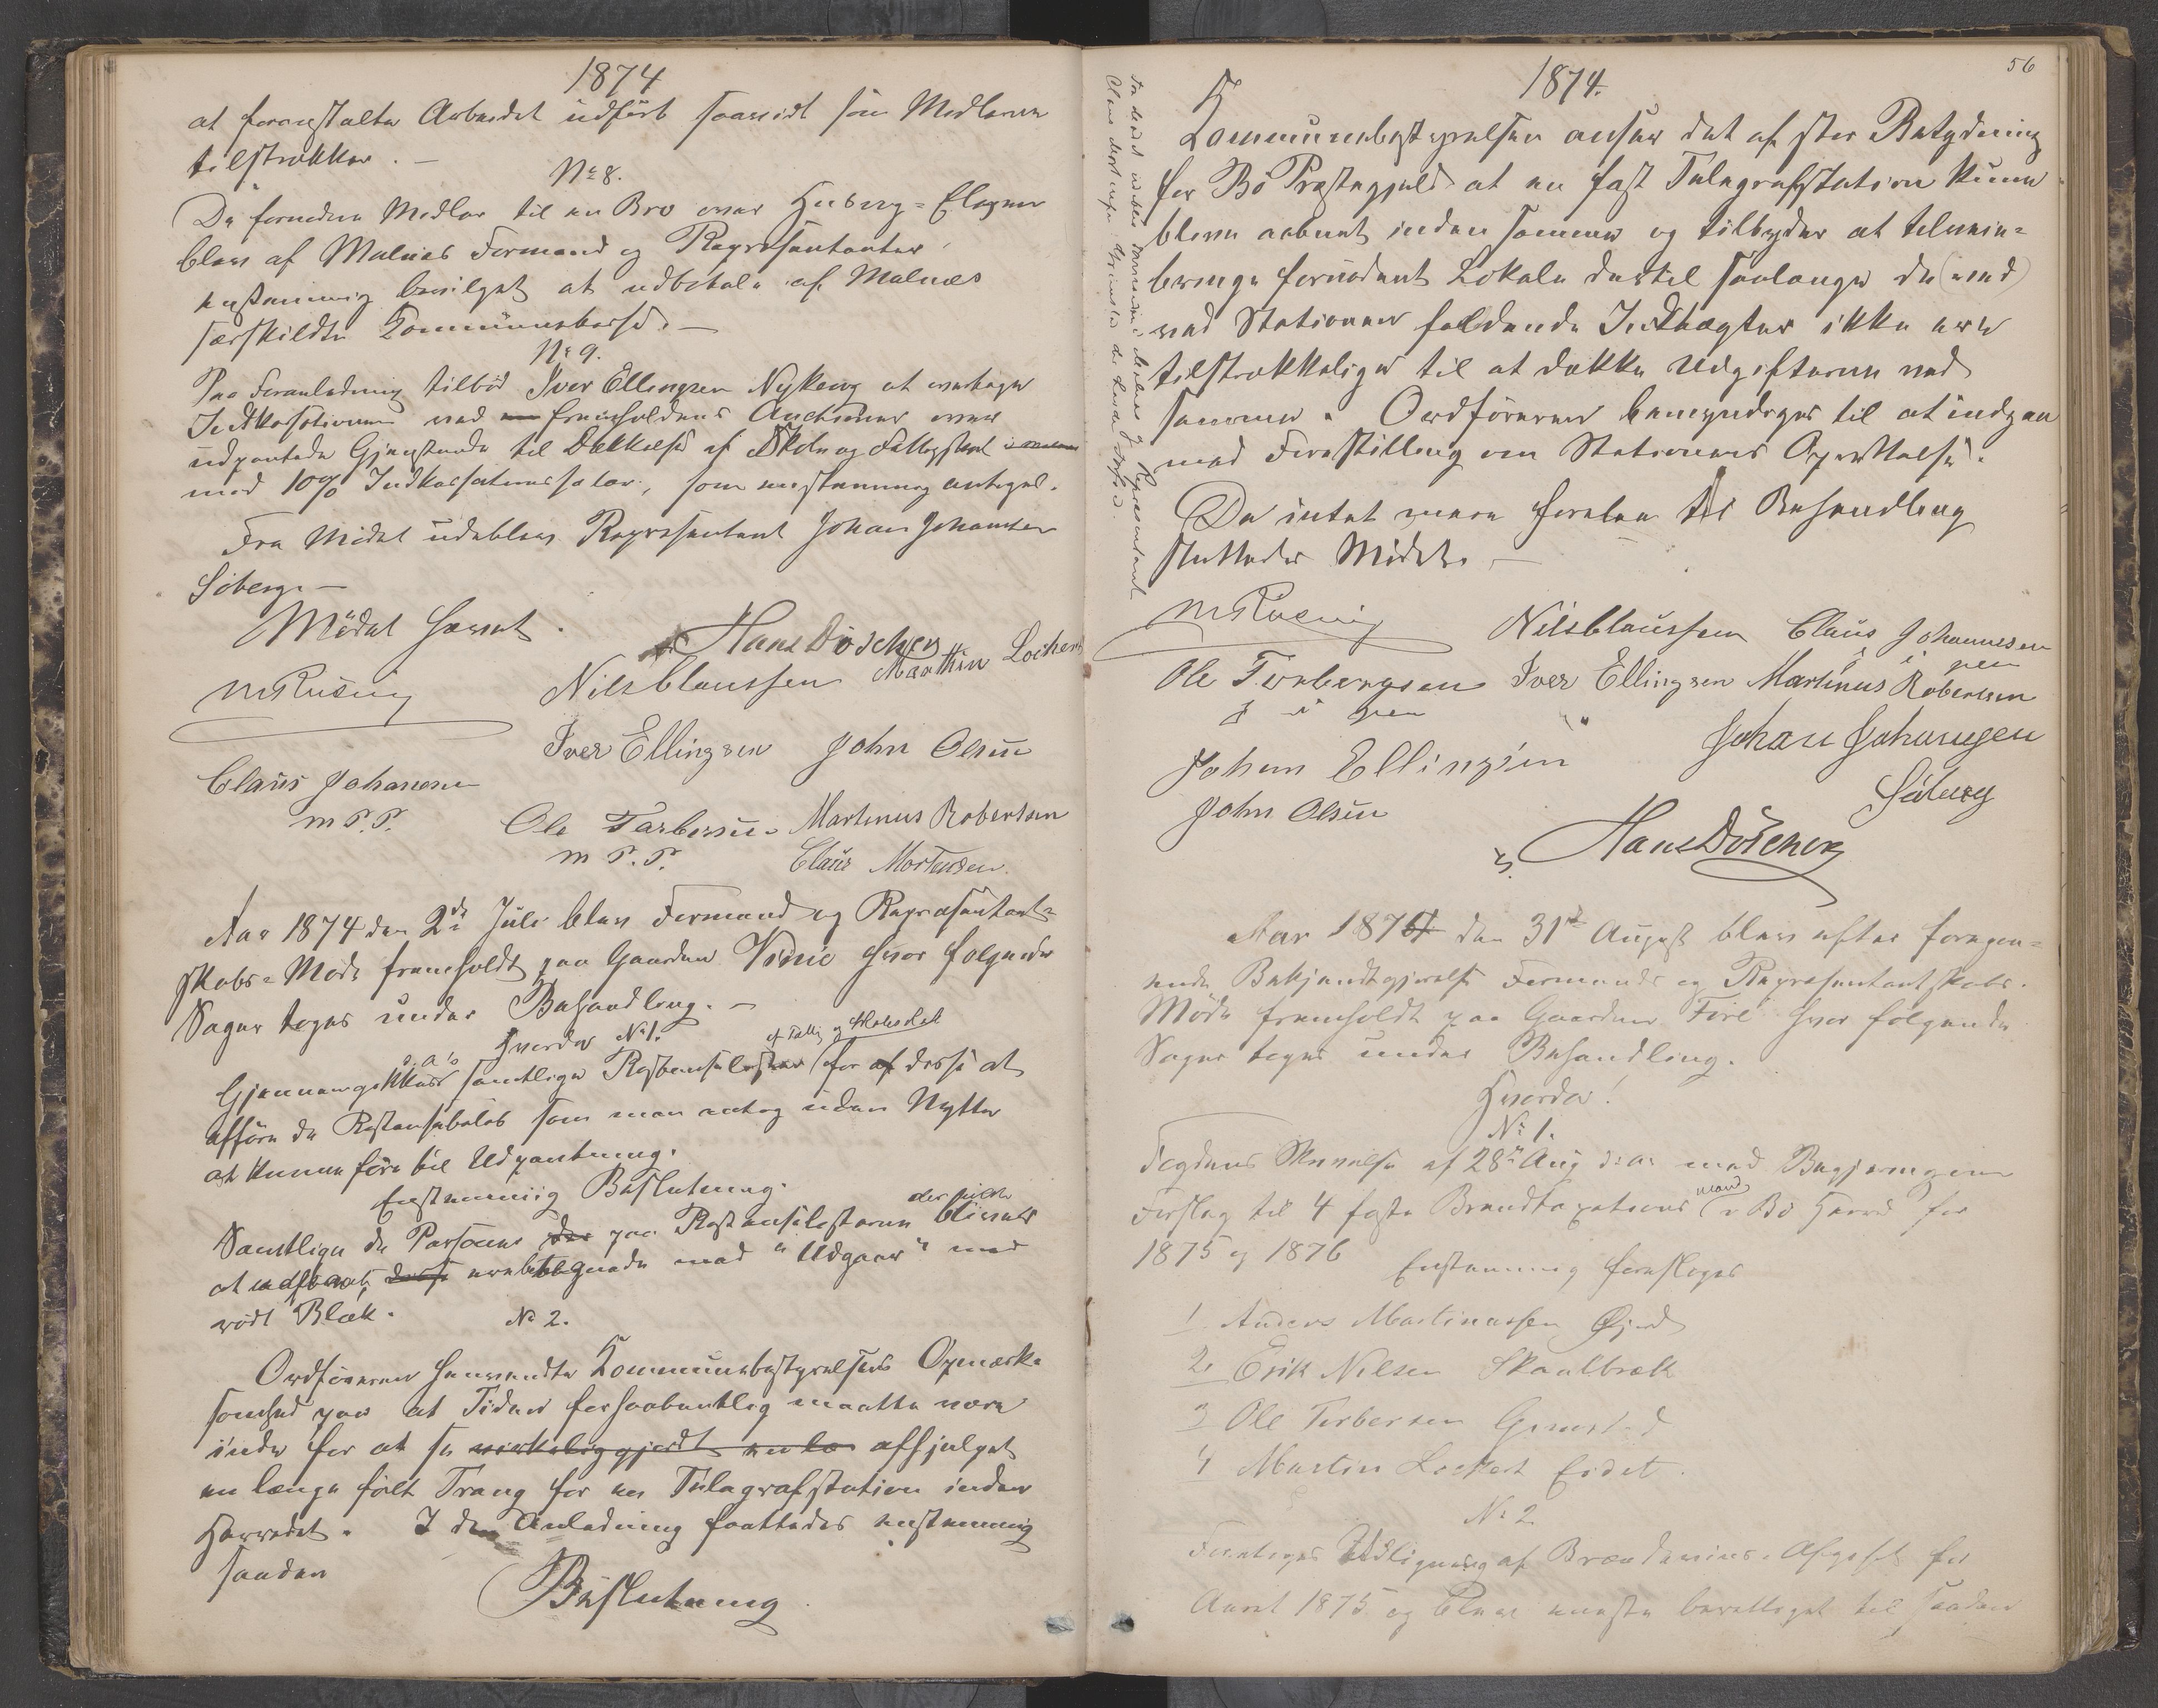 1874
at foranstalte Arbeidet udført saavidt som Midlerne
tilstrækker. —
No 8.
De fornødne Midler til en Bro over
blev af Malnæs Formand og Repræsentanter
enstemmig bevilget at udbetale af Malnæs
særskildte Kommunekasse. —
No 9.
Paa Foranledning tilbød Iver Ellingsen Nykeng at overtage
Indkassationen ved fremholdens Auctioner over
udpantede Gjenstande til Dækkelse af Skole og Fattigskat
mod 10% Indkassationssalær, som enstemmig antoges.
Fra Mødet udeblev Repræsentant Johan Johansen
Søberg. —
Mødet hævet.
Hans Döscher
MRusing Nils Claussen Marthin Lockert
Iver Ellingsen John Olsen
Claus Johansen
m. P. P. Ole Torbersen Martinus Robertsen
m P. P. Claus Mortensen.
Aar 1874 den 2de Juli blev Formand og Repræsentant-
skabs-Møde fremholdt paa Gaarden Vinje hvor følgende
Sager toges under Behandling. —
Hvorda No 1. af Fattig og Skoleskat
Gjennemgikkes d. A's samtlige Restanselister for af disse at
afføre de Restansebeløb som man antog uden Nytte
at kunne føre til Udpantning.
Enstemmig Beslutning.
Samtlige de Personer der paa Restanselisterne der bliver
at udsætte, disse ere betegnede med "Udgaar" med
rødt Blæk.
No 2.
Ordføreren henvendte Kommunebestyrelsens Opmærk-
somhed paa at Tiden forhaabentlig maatte være
inde for at se virkeliggjordt en læ afhjulpet
en længe følt Trang for en Telegrafstation inden
Herredet. I den Anledning fattedes enstemmig
saadan
Beslutning
56
1874.
Kommunebestyrelsen anser det af stor Betydning
for Bø Præstegjeld at en fast Telegrafstation kunde
blive aabnet inden samme og tilbyder at tilveie-
bringe fornødent Lokale dertil saalænge de (ved)
ved Stationen faldende Indtægter ikke ere
tilstrækkelige til at dække Udgifterne ved
samme. Ordføreren bemyndiges til at indgaa
med Forestilling om Stationens Oprettelse.
Da intet mere forelaa til Behandling
sluttedes Mødet. —
Fra Mødet udeblev Formanden i Malnes og Repræsentant
Claus Mortensen Grimstad der havde Forfald.
MRusing Nils Claussen Claus Johannesen
i pen
Ole Torbergsen Iver Ellingsen Martinus Robertsen
i pen
Johan Ellingsen Johan Johansen
Søberg
John Olsen
Hans Döscher
Aar 1874 den 31te August blev efter foregaa-
ende Bekjendtgjørelse Formands og Repræsentantskabs-
Møde fremholdt paa Gaarden Firé hvor følgende
Sager toges under Behandling.
Hvorda!
No 1.
Fogdens Skrivelse af 28de Aug d. A. med Begjæring om
Forslag til 4 faste Brandtaxations mænd i Bø Herred for
1875 og 1876
Enstemmig foresloges
1 Anders Martinussen Øjord
2 Erik Nilsen Skaalbræk
3 Ole Torbersen Grimstad
4 Martin Lockert Eidet.
No 2
Foretoges Udligning af Brændeviins-Afgift for
Aaret 1875 og blev eneste berettiget til saadan